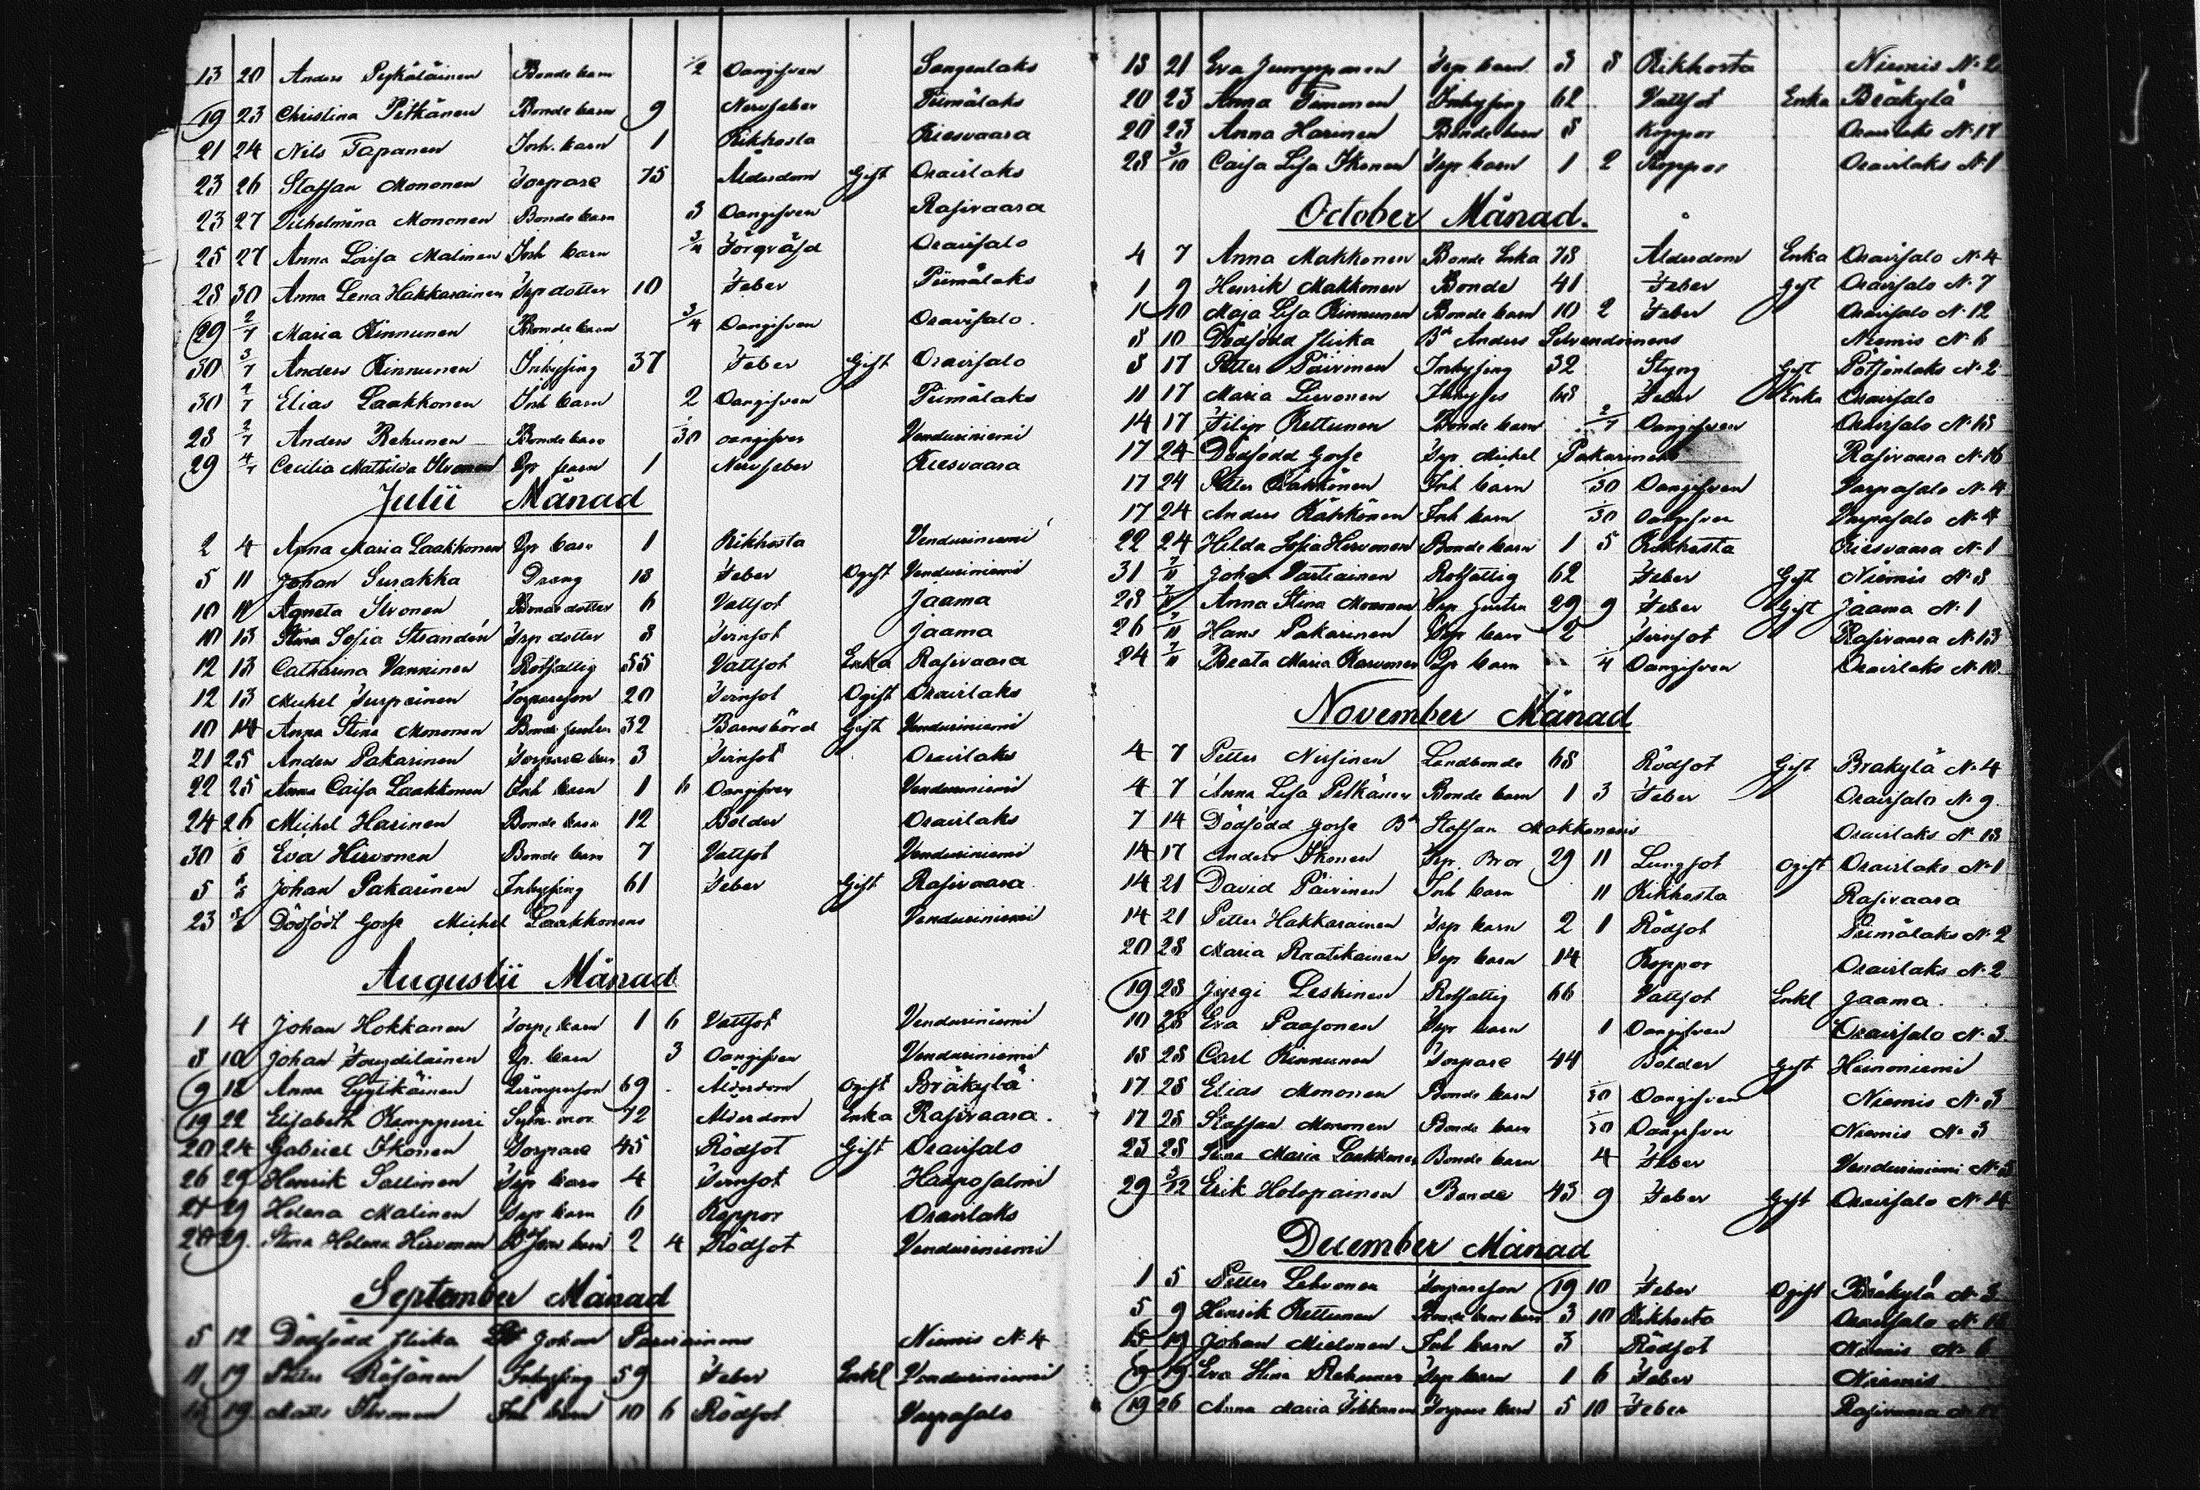 13 20 Anders Pyykäläinen Bonde barn ½ Oangifven Sangenlaks
19 23 Christina Pitkänen Bonde barn 9 Nervfeber Piimälaks
21 24 Nils Tapanen Inh. barn 1 Kikhosta Kiesvaara
23 26 Staffan Mononen Torpare 75 Ålderdom Gift Oravilaks
23 27 Vilhelmina Mononen Bonde barn 3 Oangifven Rasivaara
25 27 Anna Lovisa Malinen Inh barn Oravisalo
28 30 Anna Lena Hakkarainen Trp dotter 10 Feber Piimälaks
29 2/7 Maria Kinnunen Bonde barn 3/4 Oangifven Oravisalo.
30 3/7 Anders Kinnunen Inhysing 37 Feber Gift Oravisalo
30 4/7 Elias Laakkonen Inh barn 2 Oangifven Piimälaks
28 2/7 Anders Rehunen Bonde barn /30 oangifven Venduriniemi
29 4/7 Cecilia Mathilda barn 1 Nervfeber Kiesvaara
Julii Månad
2 4 Anna Maria Laakkonen barn 1 Kikhosta Venduriniemi
5 11 Johan Surakka Dräng 18 Feber Ogift Venduriniemi
10 11 Agneta Bonde dotter 6 Vattsot Jaama
10 13 Stina Sofia Strandén Trp dotter 8 Tvinsot Jaama
12 13 Catharina Vanninen Rotfattig 55 Vattsot Enka Rasivaara
12 13 Michel Turpeinen Torpareson 20 Tvinsot Ogift Oravilaks
10 14 Anna Stina Mononen Bonde hustru 32 Barnsbörd Gift Venduriniemi
21 25 Anders Pakarinen Torpare barn 3 Tvinsot Oravilaks
22 25 Anna Caisa Laakkonen Inh barn 1 6 Oangifven Venduriniemi
24 26 Michel Harinen Bonde barn 12 Bölder Oravilaks
30 /8 Eva Hirvonen Bonde barn 7 Vattsot Venduriniemi
5 Johan Pakarinen Inhysing 61 Feber Gift Rasivaara
23 Dödfödt Gosse Michel Laakkonens Venduriniemi
Augustii Månad
1 4 Johan Hokkanen Torp, barn 1 6 Vattsot Venduriniemi
8 10 Johan barn 3 Oangifven Venduriniemi
9 12 Anna Lyytikäinen 69 Ålderdom Ogift Bräkylä
19 22 Elisabeth Kemppuri 72 Ålderdom Enka Rasivaara.
20 24 Gabriel Ikonen Torpare 45 Rödsot Gift Oravisalo
26 29 Henrik Sallinen Trp barn 4 Tvinsot Haaposalmi
27 29 Helena Malinen Trp barn 6 Koppor Oravilaks
28 29 Stina Helena Hirvonen barn 2 4 Rödsot Venduriniemi
September Månad
5 12 Dödfödd flicka Johan Parviainens Niemis N. 4
11 19 Petter Räsänen Inhysing 59 Feber Enkl Venduriniemi
19 Matts Inh barn 10 6 Rödsot Varpasalo
18 21 Eva Jumpponen Trp. barn 3 8 Kikhosta Niemis N. 2
20 23 Anna Timonen Inhysing 62 Vattsot Enka Bräkylä
20 23 Anna Harinen Bonde barn 8 Koppor Oravilaks N. 17
28 3/10 Caisa Lisa Ikonen Trp barn 1 2 Koppor Oravilaks N. 1
October Månad.
4 7 Anna Makkonen Bonde Enka 78 Ålderdom Enka Oravisalo N. 4
1 9 Henrik Makkonen Bonde 41 Feber Gift Oravisalo N. 7
1 10 Maja Lisa Kinnunen Bonde barn 10 2 Feber Oravisalo N. 12
8 10 Dödfödd flicka Bd Anders Niemis N. 6
8 17 Petter Päivinen Inhysing 32 Styng Gift Pötsönlaks N. 2
11 17 Maria Inhyses 68 Feber Enka Oravisalo
14 17 Filip Kettunen Bonde barn 2/7 Oangifven Oravisalo N. 18
17 24 Dödfödd Gosse Trp. Michel Pakarinens Rasivaara N. 16
17 24 Petter Inh barn /30 Oangifven Varpasalo N. 4
17 24 Anders Inh barn /30 Oangifven Varpasalo N. 4
22 24 Hilda Sofia Hirvonen Bonde barn 1 5 Kikhosta Kiesvaara N. 1
31 7/11 Johan Vartiainen Rotfattig 62 Feber Gift Niemis N. 8
28 7/11 Anna Stina Mononen Trp hustru 29 9 Feber Gift Jaama N. 1
26 7/11 Hans Pakarinen Trp barn 2 Tvinsot Rasivaara N. 13
24 7/11 Beata Maria Karvonen barn /4 Oangifven Oravilaks N. 10.
November Månad
4 7 Petter Nissinen Landbonde 68 Rödsot Gift Bräkylä N. 4
4 7 Anna Lisa Pitkänen Bonde barn 1 3 Feber Oravisalo N. 9
7 14 Dödfödd gosse Bd Staffan Makkonens Oravilaks N. 13
14 17 Anders Ikonen Trp. Bror 29 11 Lungsot Ogift Oravilaks N. 1
14 21 David Päivinen Inh barn 11 Kikhosta Rasivaara
14 21 Petter Hakkarainen Trp barn 2 1 Rödsot Piimälaks N. 2
20 28 Maria Raatikainen Trp barn 14 Koppor Oravilaks N. 2
19 28 Jyrgi Leskinen Rotfattig 66 Vattsot Enkl Jaama.
10 28 Eva Paasonen Trp barn 1 Oangifven Oravisalo N. 3.
18 28 Carl Kinnunen Torpare 44 Bölder Gift Heinoniemi
17 28 Elias Mononen Bonde barn /30 Oangifven Niemis N. 3
17 28 Staffan Mononen Bonde barn /30 Oangifven Niemis N. 3
23 28 Maria Laakkonen Bonde barn 4 Feber Venduriniemi N. 5
29 3/12 Erik Holopainen Bonde 43 9 Feber Gift Oravisalo N. 14
December Månad
1 5 Petter Torpareson 19 10 Feber Ogift Bräkylä N. 3
5 9 Henrik Kettunen barn 3 10 Kikhosta Oravisalo N. 18
19 Johan Mielonen Inh barn 3 Rödsot Niemis N. 6
19 Eva Stina Rehunen Trp barn 1 6 Feber Niemis
19 26 Anna Maria Torpare barn 5 10 Feber Rasivaara